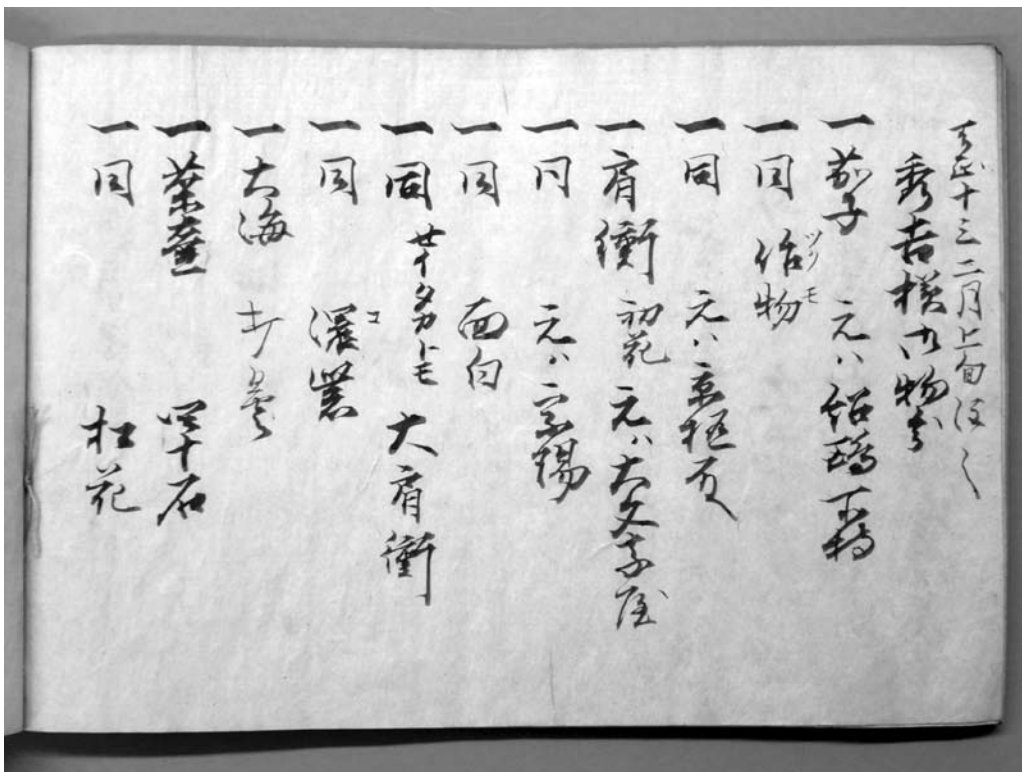 天正十三二月上旬
秀吉様御物
一茄子 元ハ紹鴎所持
一同 作物 ツクモ
一同 元ハ京極
一肩衝 初花 元ハ大文字屋
一同 元ハ宗陽
一同 面白
一同 セイタカトモ 大肩衝
一同 濃
一大海
一葉壷 四十石
一同 松花